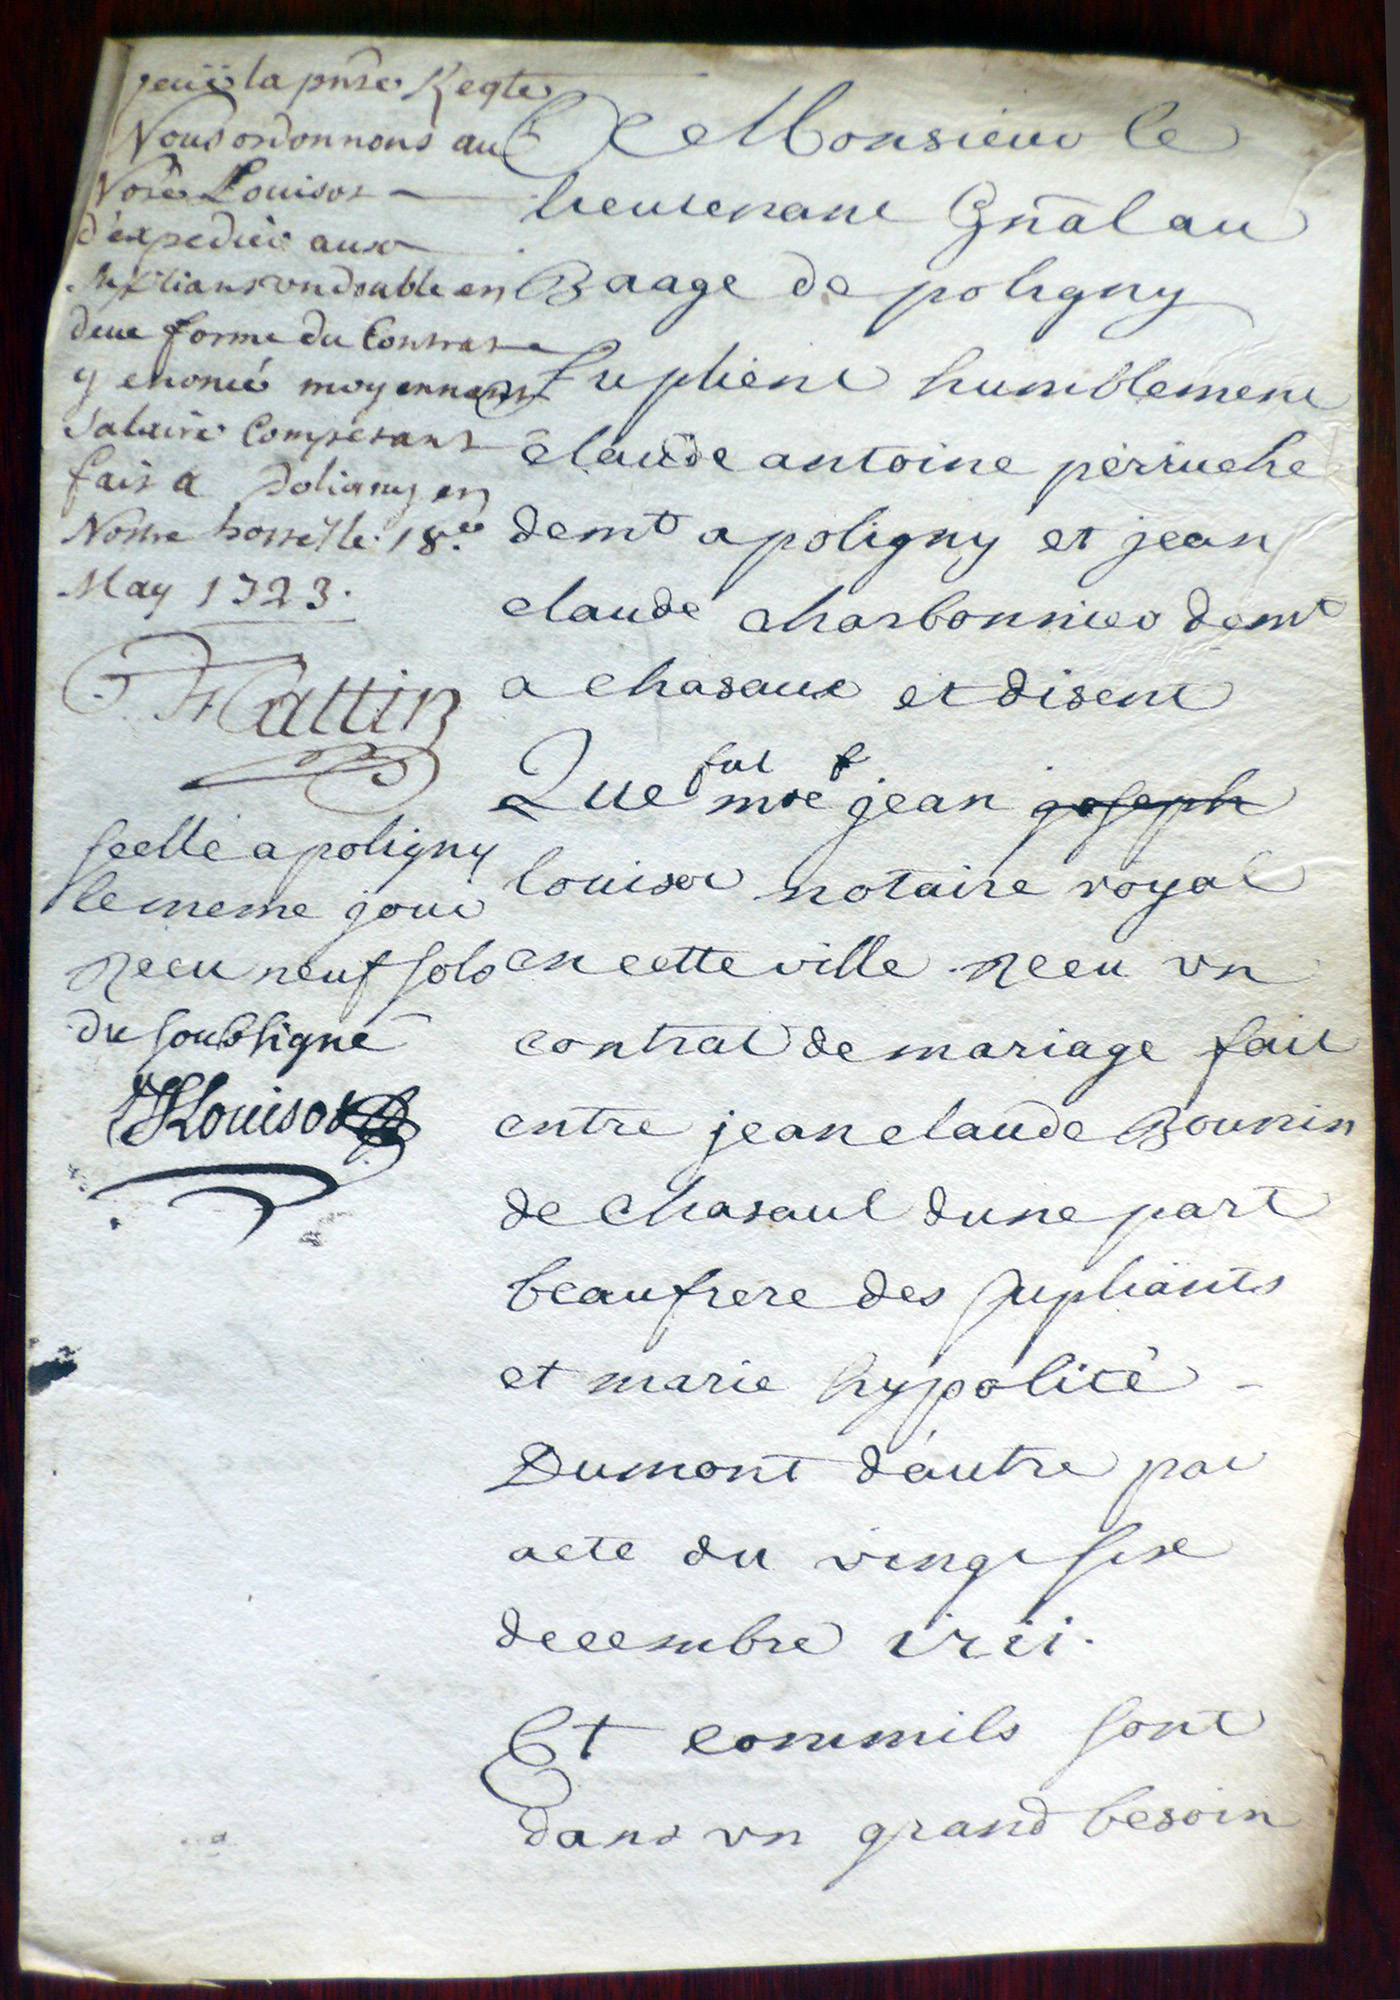 veüe la pnte Reqte
Nous ordonnons au
Nore Louisot
d'expedier aux
supliants un double en
deue forme du Contract
y enoncé moyennant
salaire Competant
fait a Poligny en
Nostre hostel le 18e
May 1723.
Cattin
scellé a poligny
le meme jour
Receu neuf sols
du soubsigné
Louisot
A Monsieur le
lieutenant Gñal au
Baage de poligny
Supliént humblement
claude antoine perruche
demt a poligny et jean
claude charbonnier demt
a chasaux et disent
fut f
Que mre jean joseph
louisot notaire royal
en cette ville receu un
contrat de mariage fait
entre jean claude Bounin
de chasaul dune part
beaufrere des supliants
et marie hypolite
Dumont d'autre par
acte du vingt six
decembre 1711.
Et comm ils sont
dans un grand besoin